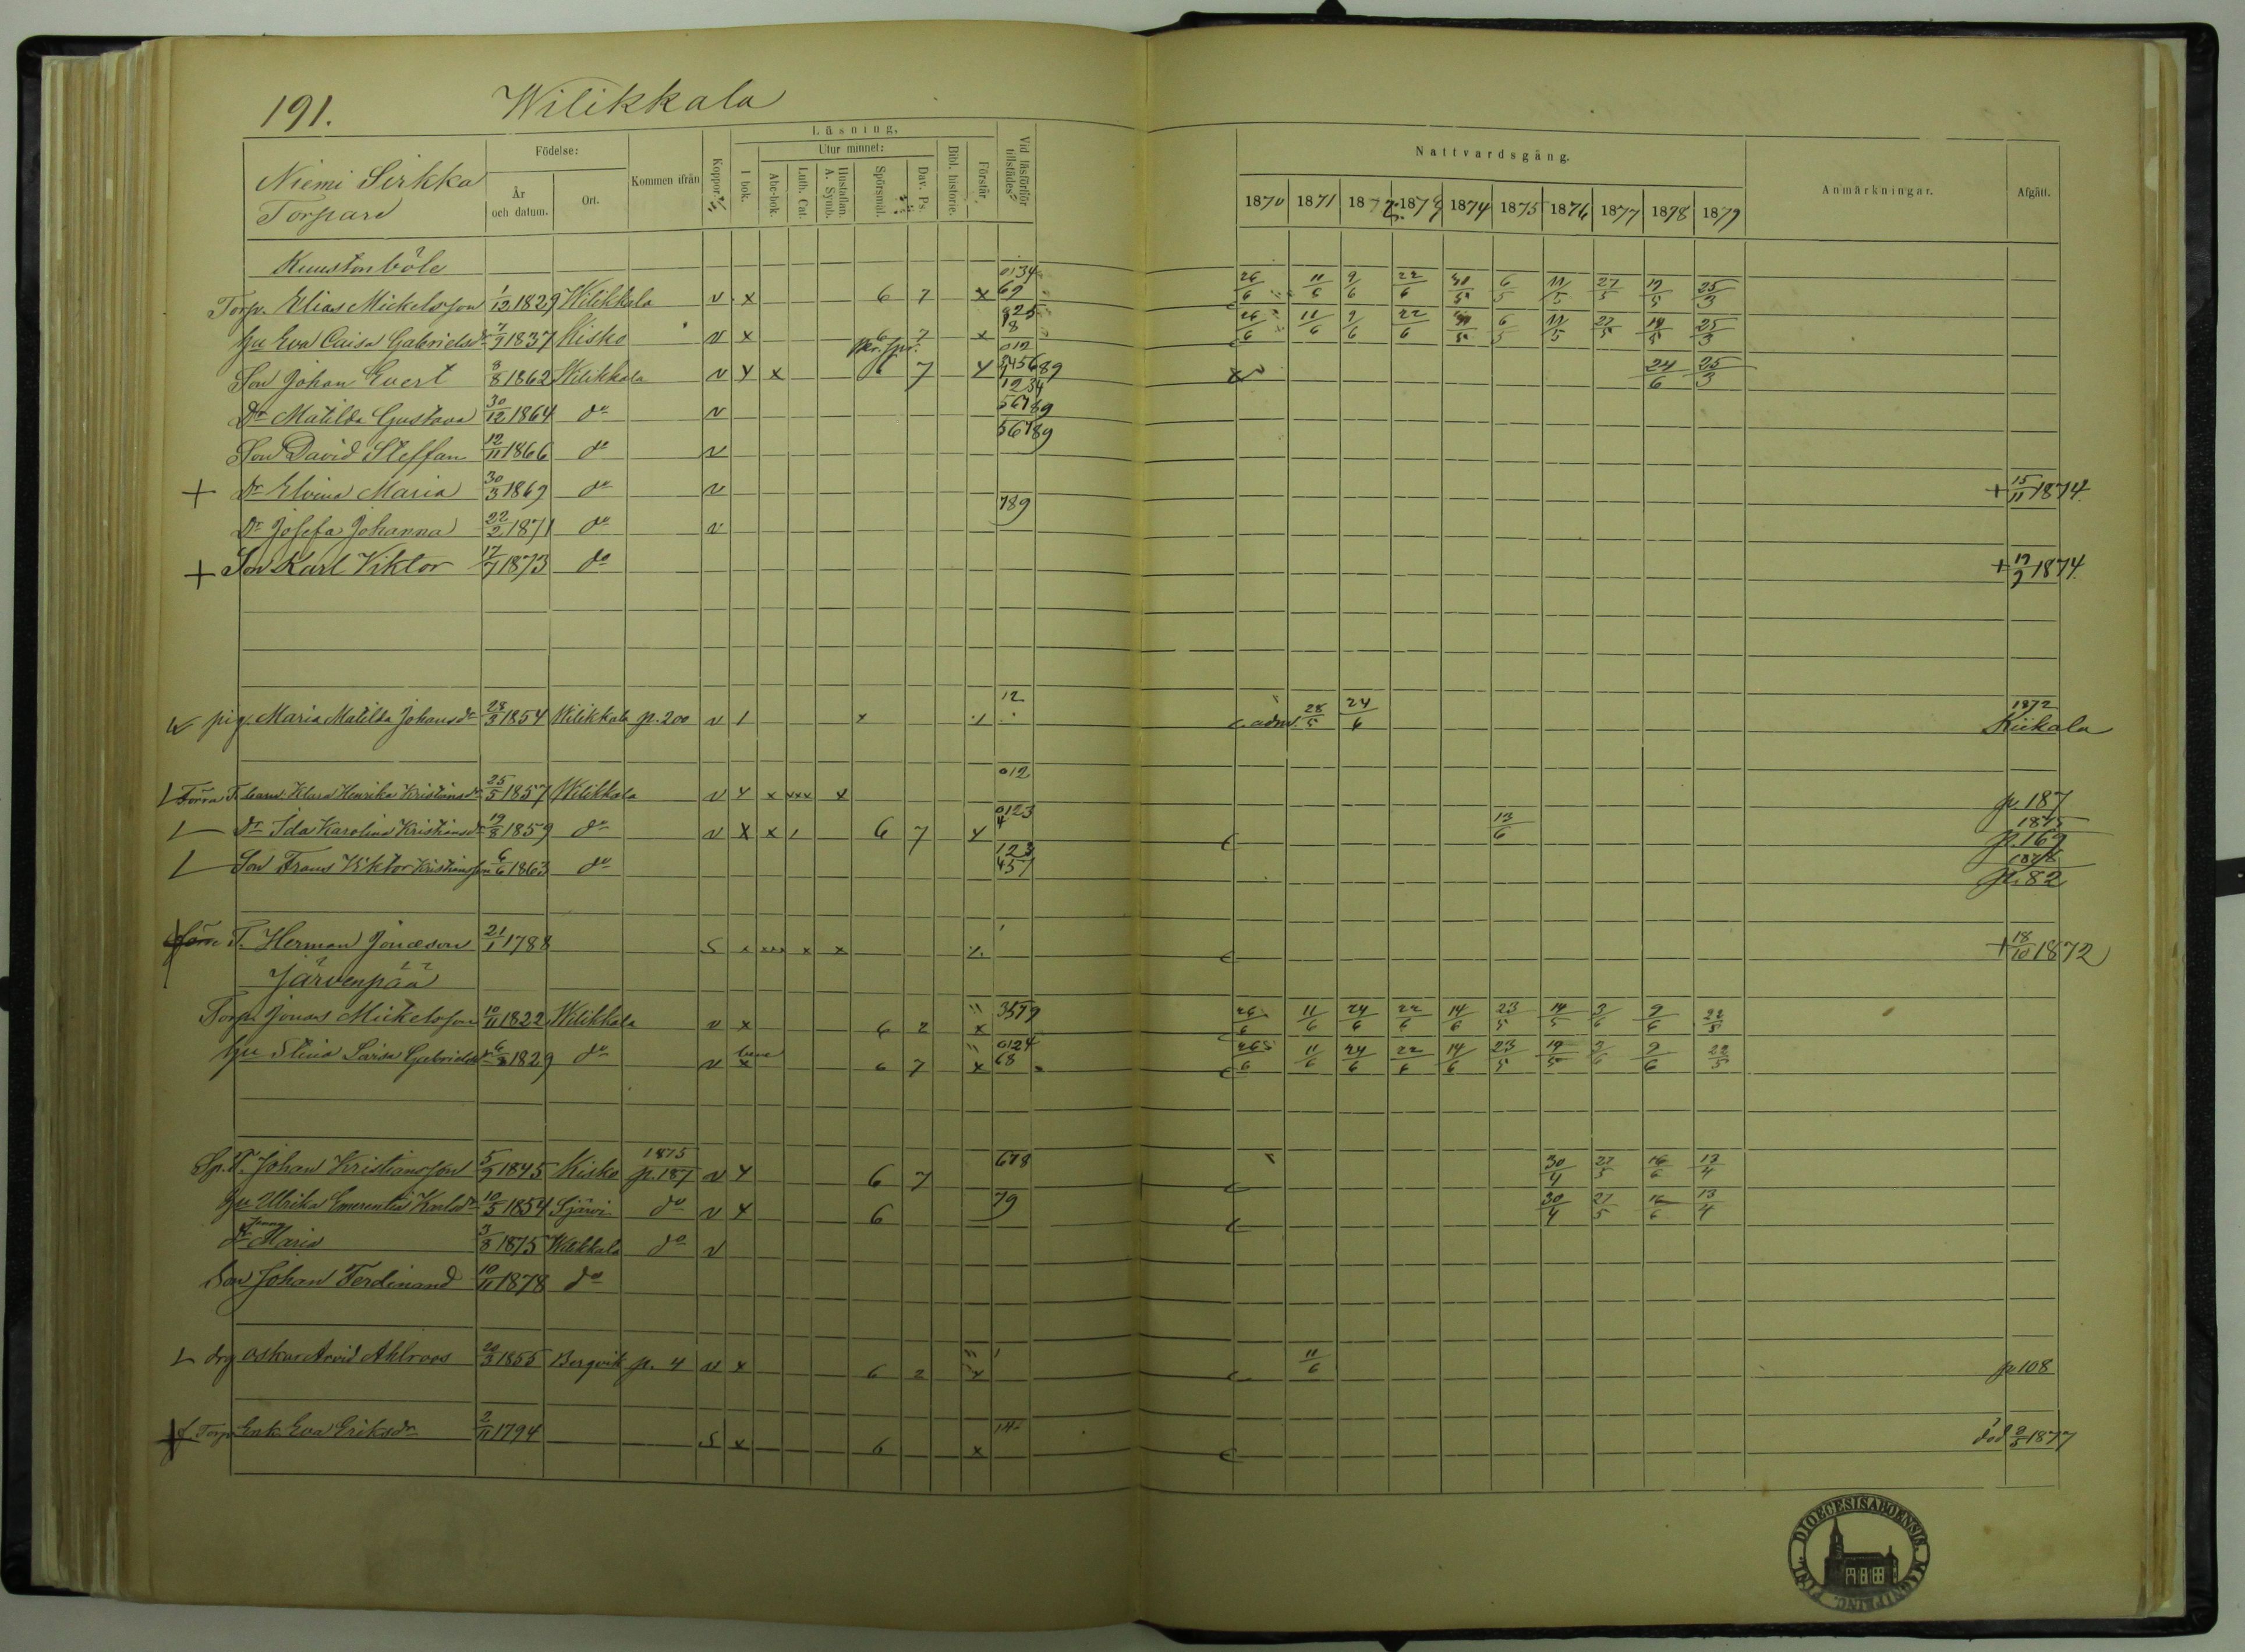 191. Wilikkala
Niemi Sirkka
Torpare
Födelse:
År och datum.
Ort.
Kommen ifrån
Koppor.
Läsning,
I bok.
Utur minnet:
Abc-bok.
Luth. Cat.
Hustaflan. A. Symb.
Spörsmål.
Dav. Ps.
Bibl. historie.
Förstår.
Vid läsförhör tillstädes
Nattvardsgång.
1870 1871 1872 1873 1874 1875 1876 1877 1878 1879
Anmärkningar.
Afgått.
Kuustonböle
Torp. Elias Mickelsson 1/12 1829 Wilikkala v x 6 7 x 0134 69 26/6 11/6 9/6 22/6 6/5 11/5 27/5 19/5 25/3
hu Eva Caisa Gabrielsdr 7/7 1837 Kisko v x 6 7 x 26/6 11/6 9/6 22/6 6/5 11/5 27/5 19/5 25/3
Son Johan Evert 3/8 1862 Wilikkala v x x 6 7 x 012 345689 24/6 25/3
Dr Matilda Gustava 30/12 1864 do v 1234 56789
Son David Steffan 12/11 1866 do v 56789
+ Dr Elvina Maria 30/3 1869 do v + 15/11 1874
Dr Josefa Johanna 22/2 1871 do v 789
+ Son Karl Viktor 17/7 1873 do + 19/9 1874
pig. Maria Matilda Johansdr 28/3 1854 Wilikkala p. 200 v 1 x 12 adm. 28/5 24/6 1872 Kiikala
Förra T. barn: Klara Henrika Kristiansdr 25/5 1857 Wilikkala v x x xxx x 012 p 187
Dr Ida Karolina Kristiansdr 19/8 1859 do v x x 1 6 7 x 0123 4 13/6 1875 p. 169
Son Frans Viktor Kristiansson 6/6 1863 do 123 457 1878 p. 82
T. Herman Jonasson 21/1 1788 S x xxx x x + 18/10 1872
Järvenpää
Torp. Jonas Mickelsson 10/11 1822 Wilikkala v x 6 2 x 3579 26/6 11/6 24/6 22/6 14/6 23/5 14/5 3/6 9/6 22/5
hu Stina Saisa Gabrielsdr 1829 do v x 6 7 x 0124 68 26/6 11/6 24/6 22/6 14/6 23/5 3/6 9/6 22/5
Sp. T. Johan Kristiansson 5/9 1845 Kisko 1875 p. 187 v x 6 7 678 30/4 27/5 16/6 13/4
hu Ulrika Emerentia Karlsdr 10/5 1854 Sjärvi do v x 6 79 30/4 21/5 16/6 13/4
Dr Maria 3/8 1875 Wilikkala do v
Son Johan Ferdinand 10/11 1878 do
drg Oskar Arvid Ahlroos 20/3 1855 Bergvik p. 4 v x 6 2 x 1 11/6 p 108
Torp. Enk. Eva Eriksdr 2/11 1794 S x 6 x död 2/5 1877
DIOECESIS ABOENSIS. MAGNI PRINC. FINL.